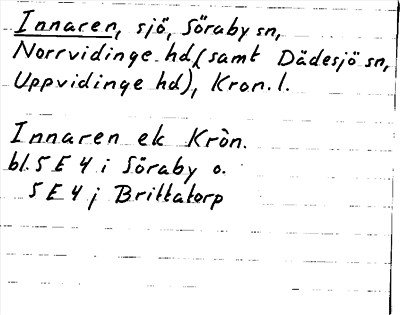 Innaren, sjö, Söraby sn,
Norrvidinge hd (samt Dädesjö sn,
Uppvidinge hd), Kron. l.
Innaren ek Kròn.
bl. 5 E 4 i Söraby o.
5 E 4 j Brittatorp